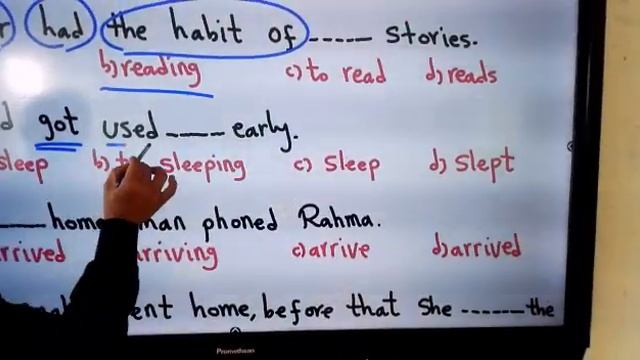 had the habit of ----- stories.
b) reading c) to read d) reads
got used ---- early.
sleep b) sleeping c) sleep d) slept
---- home, phoned Rahma.
c) arrive d) arrived
home, before that she ------ the
Promethean